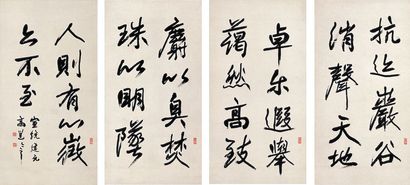 抗迹巖谷
消聲天地
卓尔遐舉
藹然高致
麝以臭焚
珠以明墜
人則有心微
亡不至
宣統建元
高邕之